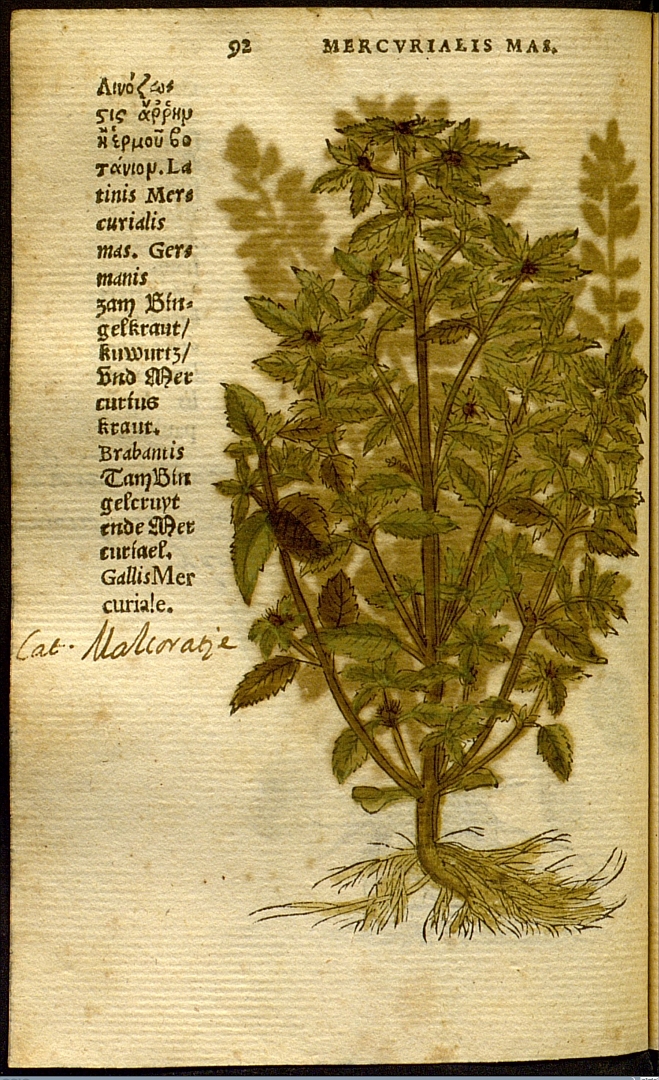 92 MERCVRIALIS MAS.
Λινόζως
ςις ἄῤῥην
ἢ ἑρμοῦ βο
τάνιον. La
tinis Mers
curialis
mas. Gers
manis
zam Bin-
gelkraut/
kuwurtz/
Vnd Mer
curius
kraut.
Brabantis
Tam Bin
gelcruyt
ende Mer
curiael.
Gallis Mer
curiale.
Cat. Malcoratje